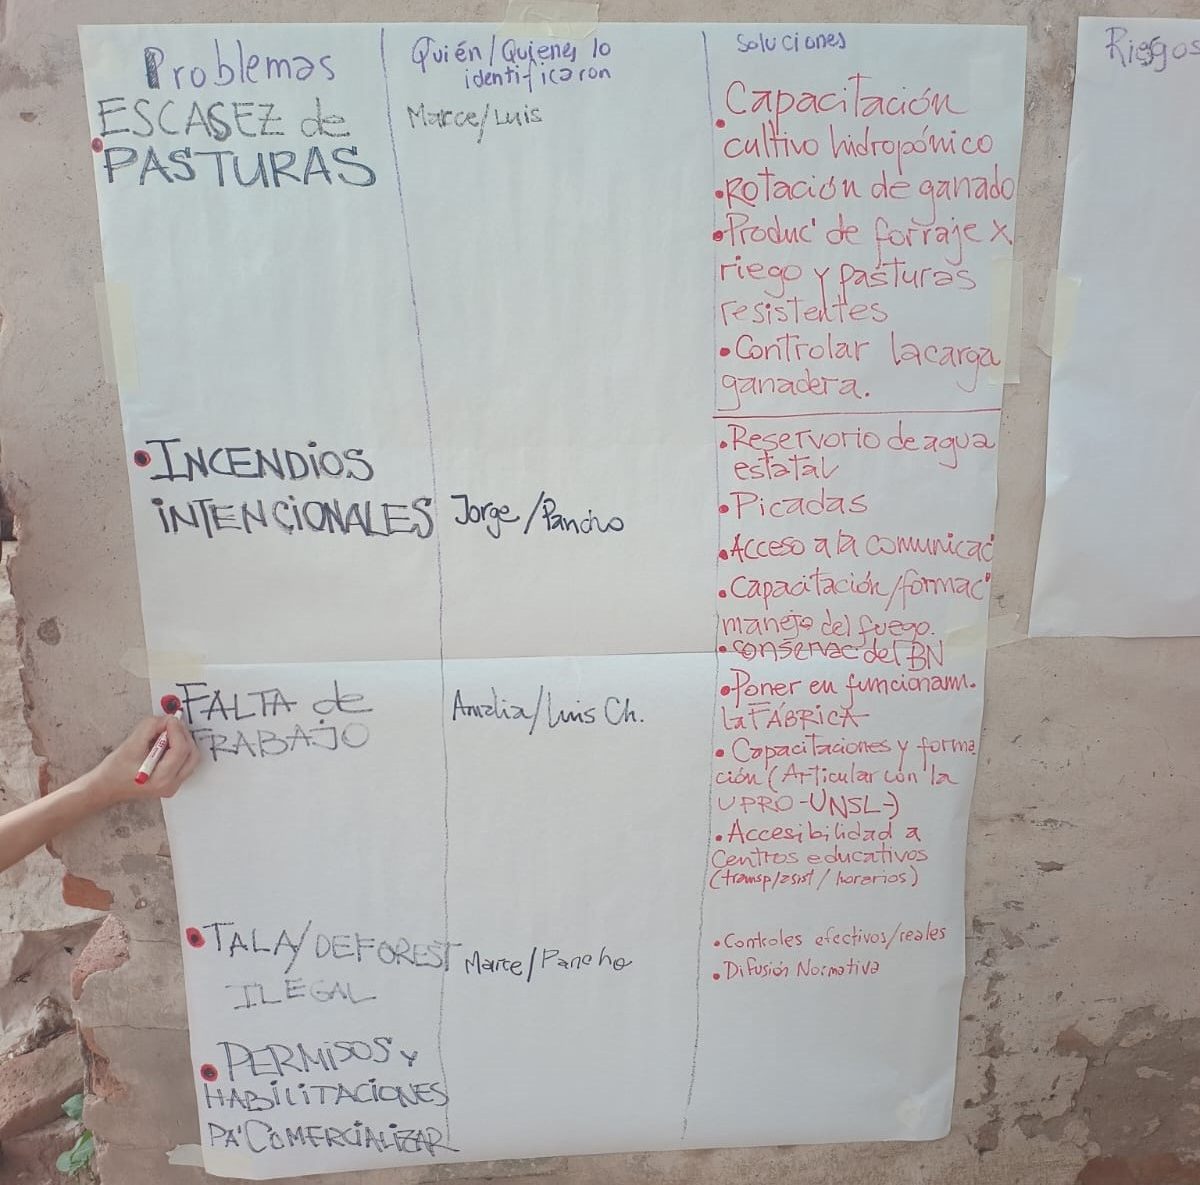 Problemas
ESCASEZ de
PASTURAS
INCENDiOS
iNTENCiONALES
FALTA de
TRABAJO
TALA/DEFOREST
ILEGAL
PERMiSOS y
HABiLiTACiONES
PA' COMERCiALiZAR
Quién/Quienes lo
identificaron
Marce/Luis
Jorge/Pancho
Amalia/Luis Ch.
Marce/Pancho
Soluciones
Capacitación
•cultivo hidropónico
•Rotación de ganado
•Produc' de forraje x
riego y pasturas
resistentes
•Controlar la carga
ganadera.
•Reservorio de agua
estatal
•Picadas
•Acceso a la comunicac
•Capacitación/formac'
manejo del fuego.
•conservac' del BN
•Poner en funcionam.
la FÁBRICA
•Capacitaciones y forma
ción (Articular con la
UPRO-UNSL-)
•Accesibilidad a
Centros educativos
(transp/asist/horarios)
•Controles efectivos/reales
•Difusión Normativa
Riesgos